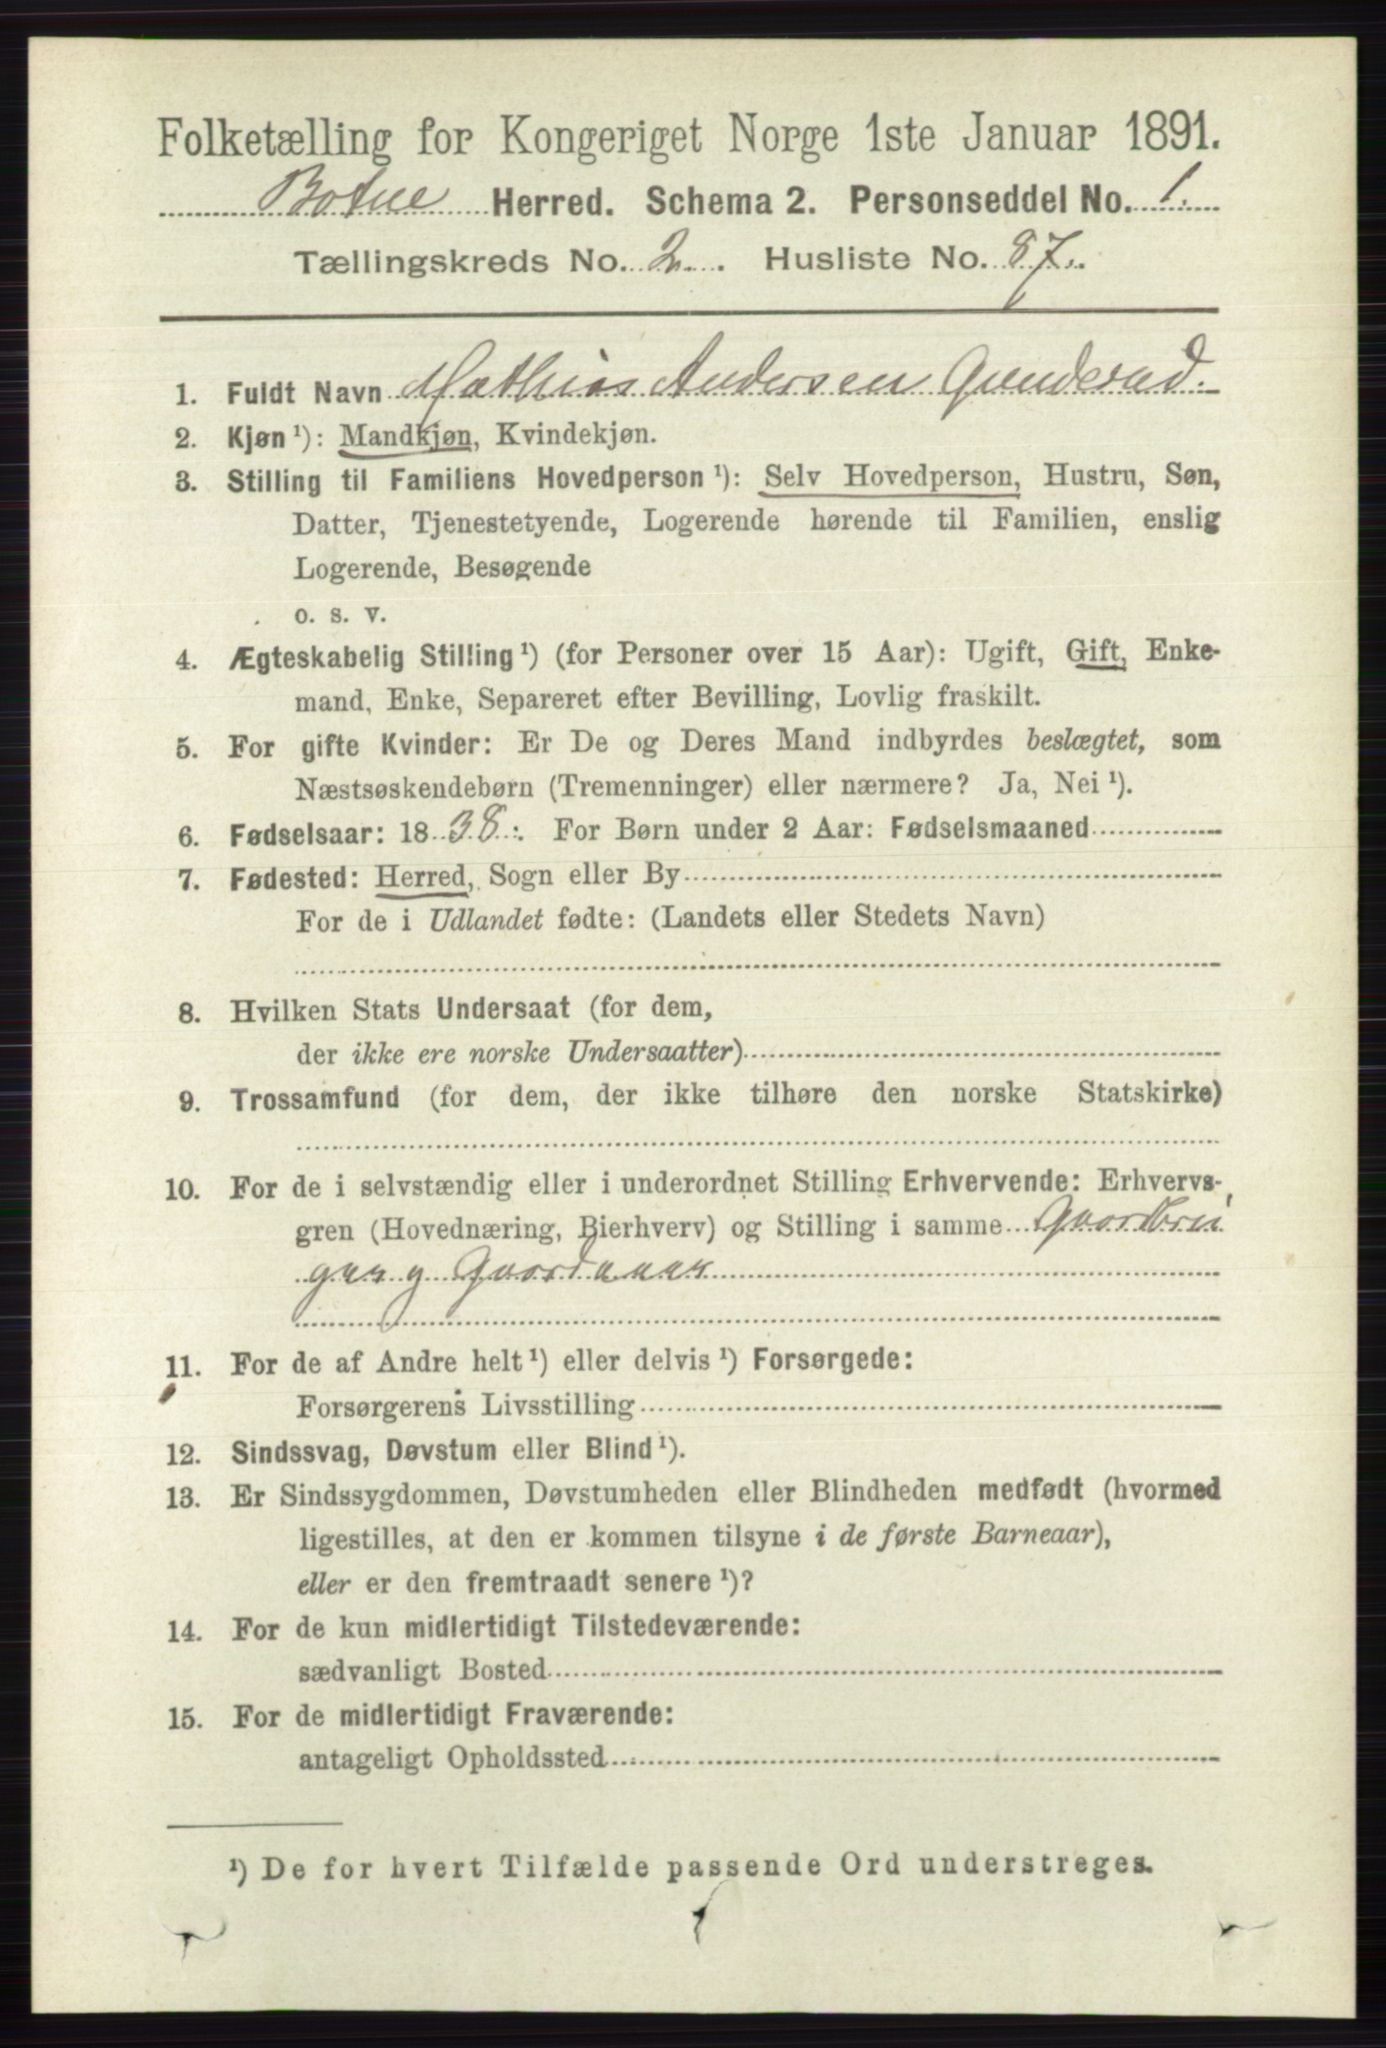 Folketælling for Kongeriget Norge 1ste Januar 1891.
Botne Herred. Schema 2. Personseddel No. 1.
Tællingskreds No. 2. Husliste No. 87.
1. Fuldt Navn Mathias Andersen Gunderød.
2. Kjøn ¹): Mandkjøn, Kvindekjøn.
3. Stilling til Familiens Hovedperson ¹): Selv Hovedperson, Hustru, Søn,
Datter, Tjenestetyende, Logerende hørende til Familien, enslig
Logerende, Besøgende
o. s. v.
4. Ægteskabelig Stilling ¹) (for Personer over 15 Aar): Ugift, Gift, Enke-
mand, Enke, Separeret efter Bevilling, Lovlig fraskilt.
5. For gifte Kvinder: Er De og Deres Mand indbyrdes beslægtet, som
Næstsøskendebørn (Tremenninger) eller nærmere? Ja, Nei ¹).
6. Fødselsaar: 1838. For Børn under 2 Aar: Fødselsmaaned
7. Fødested: Herred, Sogn eller By
For de i Udlandet fødte: (Landets eller Stedets Navn)
8. Hvilken Stats Undersaat (for dem,
der ikke ere norske Undersaatter)
9. Trossamfund (for dem, der ikke tilhøre den norske Statskirke)
10. For de i selvstændig eller i underordnet Stilling Erhvervende: Erhvervs-
gren (Hovednæring, Bierhverv) og Stilling i samme Gaardbru
11. For de af Andre helt ¹) eller delvis ¹) Forsørgede:
Forsørgerens Livsstilling
12. Sindssvag, Døvstum eller Blind ¹).
13. Er Sindssygdommen, Døvstumheden eller Blindheden medfødt (hvormed
ligestilles, at den er kommen tilsyne i de første Barneaar),
eller er den fremtraadt senere ¹)?
14. For de kun midlertidigt Tilstedeværende:
sædvanligt Bosted
15. For de midlertidigt Fraværende:
antageligt Opholdssted
¹) De for hvert Tilfælde passende Ord understreges.